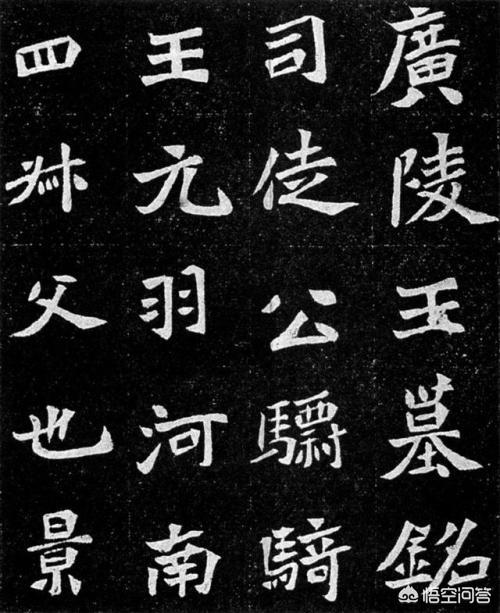 廣陵王墓銘
司徒公驃騎
王元羽河南
四叔父也景
悟空问答